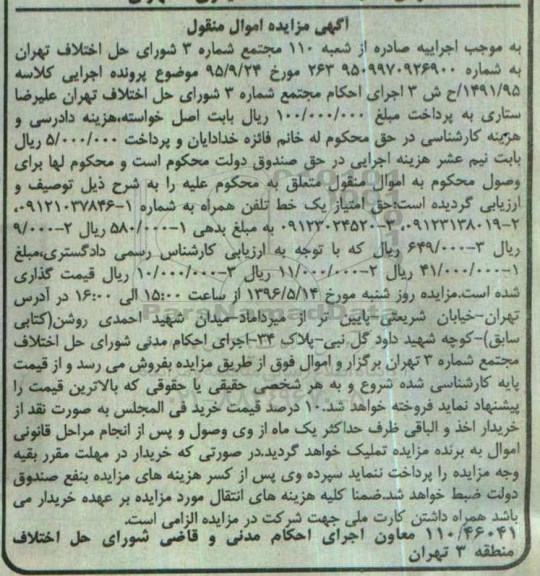 آگهی مزایده اموال منقول
به موجب اجراییه صادره از شعبه ۱۱۰ مجتمع شماره ۳ شورای حل اختلاف تهران
به شماره ۹۵۰۹۹۷۰۹۲۶۹۰۰ ۲۶۳ مورخ ۹۵/۹/۲۴ موضوع پرونده اجرایی کلاسه
۱۴۹۱/۹۵/ح ش ۳ اجرای احکام مجتمع شماره ۳ شورای حل اختلاف تهران علیرضا
ستاری به پرداخت مبلغ ۱۰۰/۰۰۰/۰۰۰ ریال بابت اصل خواسته،هزینه دادرسی و
هزینه کارشناسی در حق محکوم له خانم فائزه خدادایان و پرداخت ۵/۰۰۰/۰۰۰ ریال
بابت نیم عشر هزینه اجرایی در حق صندوق دولت محکوم است و محکوم لها برای
وصول محکوم به اموال منقول متعلق به محکوم علیه را به شرح ذیل توصیف و
ارزیابی گردیده است:حق امتیاز یک خط تلفن همراه به شماره ۱-۰۹۱۲۱۰۳۷۸۴۶،
۲-۰۹۱۲۳۱۳۸۰۱۹، ۳-۰۹۱۲۳۰۲۴۵۲۰ به مبلغ بدهی ۱-۵۸۰/۰۰۰ ریال ۲-۹/۰۰۰
ریال ۳-۶۴۹/۰۰۰ ریال که با توجه به ارزیابی کارشناس رسمی دادگستری،مبلغ
۱-۴۱/۰۰۰/۰۰۰ ریال ۲-۱۱/۰۰۰/۰۰۰ ریال ۳-۱۰/۰۰۰/۰۰۰ ریال قیمت گذاری
شده است.مزایده روز شنبه مورخ ۱۳۹۶/۵/۱۴ از ساعت ۱۵:۰۰ الی ۱۶:۰۰ در آدرس
تهران-خیابان شریعتی-پایین تر از میرداماد-میدان شهید احمدی روشن(کتابی
سابق)-کوچه شهید داود گل نبی-پلاک ۳۴-اجرای احکام مدنی شورای حل اختلاف
مجتمع شماره ۳ تهران برگزار و اموال فوق از طریق مزایده بفروش می رسد و از قیمت
پایه کارشناسی شده شروع و به هر شخصی حقیقی یا حقوقی که بالاترین قیمت را
پیشنهاد نماید فروخته خواهد شد.۱۰ درصد قیمت خرید فی المجلس به صورت نقد از
خریدار اخذ و الباقی ظرف حداکثر یک ماه از وی وصول و پس از انجام مراحل قانونی
اموال به برنده مزایده تملیک خواهد گردید.در صورتی که خریدار در مهلت مقرر بقیه
وجه مزایده را پرداخت ننماید سپرده وی پس از کسر هزینه های مزایده بنفع صندوق
دولت ضبط خواهد شد.ضمنا کلیه هزینه های انتقال مورد مزایده بر عهده خریدار می
باشد همراه داشتن کارت ملی جهت شرکت در مزایده الزامی است.
۱۱۰/۴۶۰۴۱ معاون اجرای احکام مدنی و قاضی شورای حل اختلاف
منطقه ۳ تهران